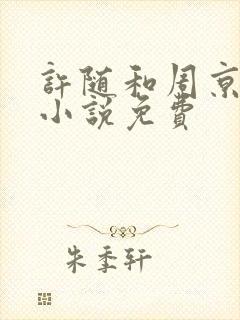 許随和周京
小説免費
朱季轩